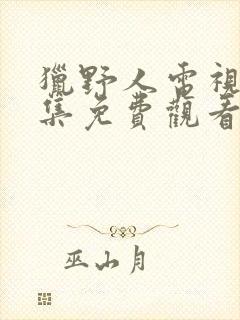 獵野人電視
集免費觀看
巫山月